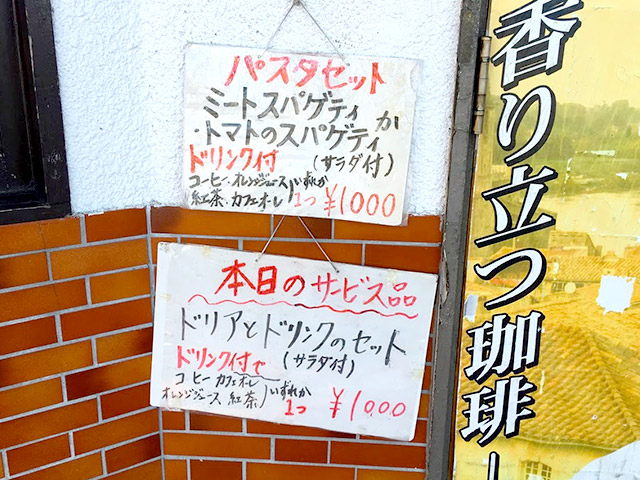 パスタセット
ミートスパゲティ
・トマトのスパゲティ か
ドリンク付 (サラダ付)
コーヒー オレンジジュース いずれか
紅茶 カフェオーレ 1つ ¥1000
本日のサービス品
ドリアとドリンクのセット
ドリンク付で (サラダ付)
コーヒー カフェオーレ いずれか
オレンジジュース 紅茶 1つ ¥1000
香り立つ珈琲